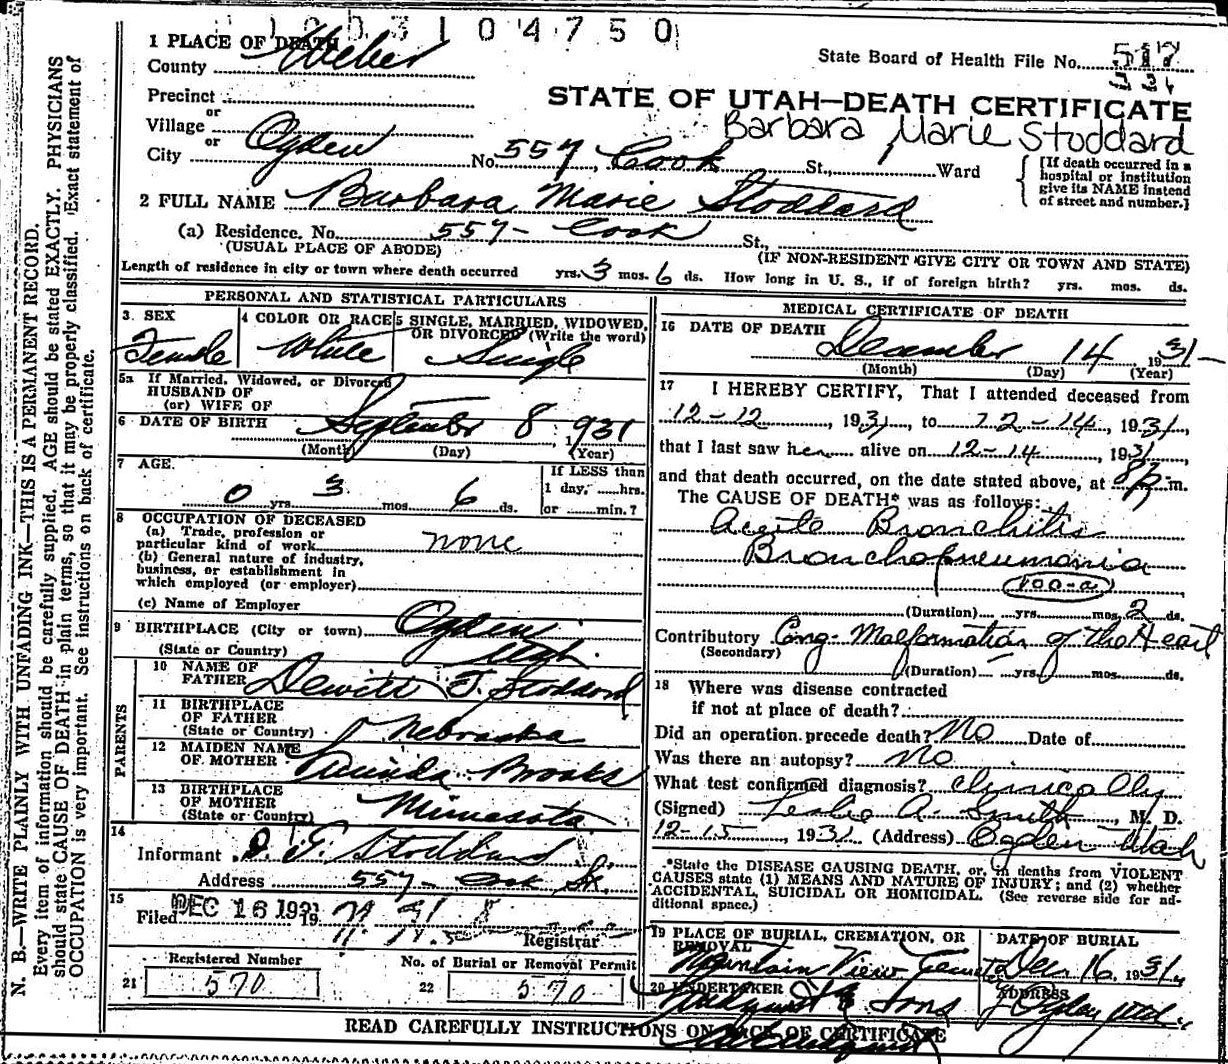 1203104750
1 PLACE OF DEATH
County Weber
State Board of Health File No. 517
Precinct
or
Village
or
STATE OF UTAH—DEATH CERTIFICATE
Barbara Marie Stoddard
City Ogden No. 557, Cook St., Ward
[If death occurred in a hospital or institution give its NAME instead of street and number.]
2 FULL NAME Barbara Marie Stoddard
(a) Residence. No. 557- Cook St.,
(USUAL PLACE OF ABODE)
(IF NON-RESIDENT GIVE CITY OR TOWN AND STATE)
Length of residence in city or town where death occurred yrs. 3 mos. 6 ds. How long in U. S., if of foreign birth? yrs. mos. ds.
PERSONAL AND STATISTICAL PARTICULARS
3. SEX
Female
4 COLOR OR RACE
White
5 SINGLE, MARRIED, WIDOWED, OR DIVORCED (Write the word)
Single
5a If Married, Widowed, or Divorced
HUSBAND OF
(or) WIFE OF
6 DATE OF BIRTH September 8, 1931
(Month) (Day) (Year)
7 AGE.
0 yrs. 3 mos. 6 ds.
If LESS than
1 day, ......hrs.
or ......min.?
8 OCCUPATION OF DECEASED
(a) Trade, profession or
particular kind of work none
(b) General nature of industry,
business, or establishment in
which employed (or employer)
(c) Name of Employer
9 BIRTHPLACE (City or town) Ogden
(State or Country) Utah.
PARENTS
10 NAME OF
FATHER Dewitt T. Stoddard
11 BIRTHPLACE
OF FATHER
(State or Country) Nebraska
12 MAIDEN NAME
OF MOTHER Brooks
13 BIRTHPLACE
OF MOTHER
(State or Country) Minnesota
14
Informant D. T. Stoddard
Address 557- Cook St.
15
Filed DEC 16 1931 19
Registrar
Registered Number
21 570
No. of Burial or Removal Permit
22 570
MEDICAL CERTIFICATE OF DEATH
16 DATE OF DEATH
December 14, 1931-
(Month) (Day) (Year)
17 I HEREBY CERTIFY, That I attended deceased from
12-12, 1931, to 12-14, 1931,
that I last saw her alive on 12-14, 1931,
and that death occurred, on the date stated above, at m.
The CAUSE OF DEATH* was as follows:
Acute Bronchitis
Bronchopneumonia
100-a
(Duration) yrs. mos. 2 ds.
Contributory Cong- Malformation of the Heart
(Secondary)
(Duration) yrs. mos. ds.
18 Where was disease contracted
if not at place of death?
Did an operation precede death? No Date of
Was there an autopsy? No
What test confirmed diagnosis? Clinically
(Signed) Leslie A. Smith, M. D.
12-15, 1931 (Address) Ogden Utah
*State the DISEASE CAUSING DEATH, or, in deaths from VIOLENT
CAUSES state (1) MEANS AND NATURE OF INJURY; and (2) whether
ACCIDENTAL, SUICIDAL OR HOMICIDAL. (See reverse side for ad-
ditional space.)
19 PLACE OF BURIAL, CREMATION, OR
REMOVAL
Mountain View Cemetery
DATE OF BURIAL
Dec 16, 1931,
20 UNDERTAKER
& Sons
ADDRESS
Ogden Utah.
READ CAREFULLY INSTRUCTIONS ON BACK OF CERTIFICATE
N. B.—WRITE PLAINLY WITH UNFADING INK—THIS IS A PERMANENT RECORD.
Every item of information should be carefully supplied. AGE should be stated EXACTLY. PHYSICIANS
should state CAUSE OF DEATH in plain terms, so that it may be properly classified. Exact statement of
OCCUPATION is very important. See instructions on back of certificate.